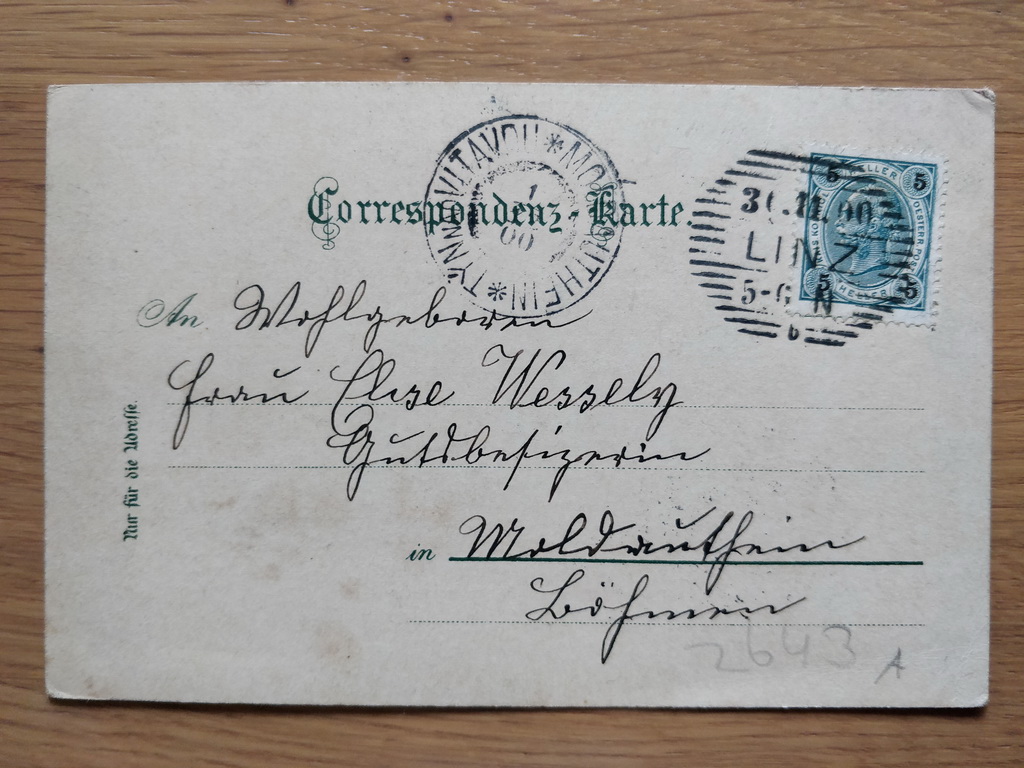 Correspondenz-Karte.
TÝN NAD VLTAVOU * MOLDAUTHEIN *
1
00
5 HELLER 5
OESTERR. POST
5 HELLER 5
00
LINZ
5-6 N
b
An Wohlgeboren
Frau Elise Wessely
Gutsbesizerin
in Moldauthein
Böhmen
Nur für die Adresse.
2643
A